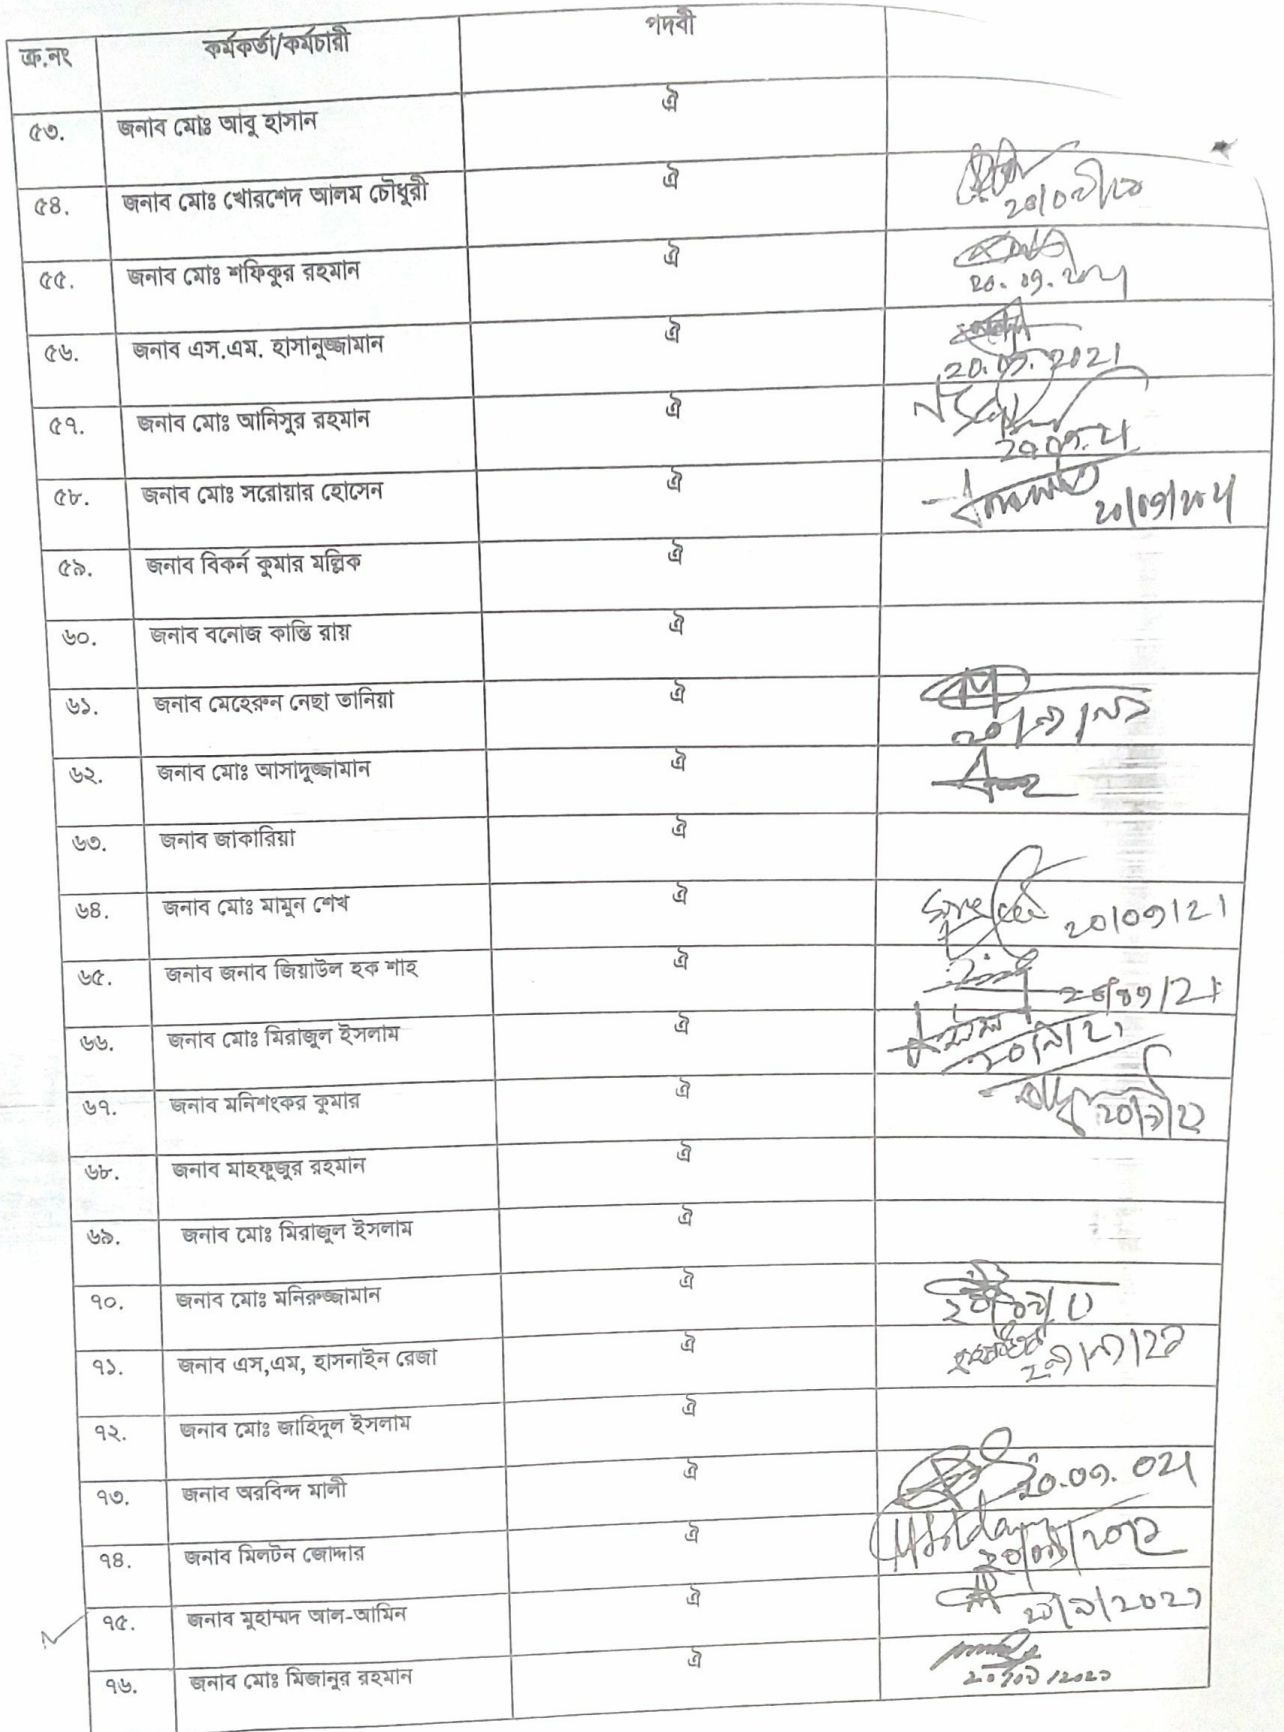 ক্র.নং কর্মকর্তা/কর্মচারী পদবী
৫৩. জনাব মোঃ আবু হাসান ঐ
৫৪. জনাব মোঃ খোরশেদ আলম চৌধুরী ঐ
৫৫. জনাব মোঃ শফিকুর রহমান ঐ
20.09.2021
৫৬. জনাব এস.এম. হাসানুজ্জামান ঐ
20.09.2021
৫৭. জনাব মোঃ আনিসুর রহমান ঐ
20.09.21
৫৮. জনাব মোঃ সরোয়ার হোসেন ঐ ২০/০৯/২০২১
৫৯. জনাব বিকর্ন কুমার মল্লিক ঐ
৬০. জনাব বনোজ কান্তি রায় ঐ
৬১. জনাব মেহেরুন নেছা তানিয়া ঐ
৬২. জনাব মোঃ আসাদুজ্জামান ঐ
৬৩. জনাব জাকারিয়া ঐ
৬৪. জনাব মোঃ মামুন শেখ ঐ 20/09/21
৬৫. জনাব জনাব জিয়াউল হক শাহ ঐ 20/09/21
৬৬. জনাব মোঃ মিরাজুল ইসলাম ঐ
২০/৯/২১
৬৭. জনাব মনিশংকর কুমার ঐ
৬৮. জনাব মাহফুজুর রহমান ঐ
৬৯. জনাব মোঃ মিরাজুল ইসলাম ঐ
৭০. জনাব মোঃ মনিরুজ্জামান ঐ
৭১. জনাব এস,এম, হাসনাইন রেজা ঐ
৭২. জনাব মোঃ জাহিদুল ইসলাম ঐ
৭৩. জনাব অরবিন্দ মালী ঐ
৭৪. জনাব মিলটন জোদ্দার ঐ
৭৫. জনাব মুহাম্মদ আল-আমিন ঐ
৭৬. জনাব মোঃ মিজানুর রহমান ঐ